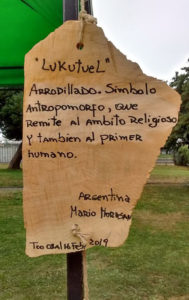 "LUKUTUEL"
ARRODILLADO. SIMBOLO
ANTROPOMORFO, QUE
REMITE AL AMBITO RELIGIOSO
Y TAMBIEN AL PRIMER
HUMANO.
ARGENTINA
MARIO
16 FEB 2019